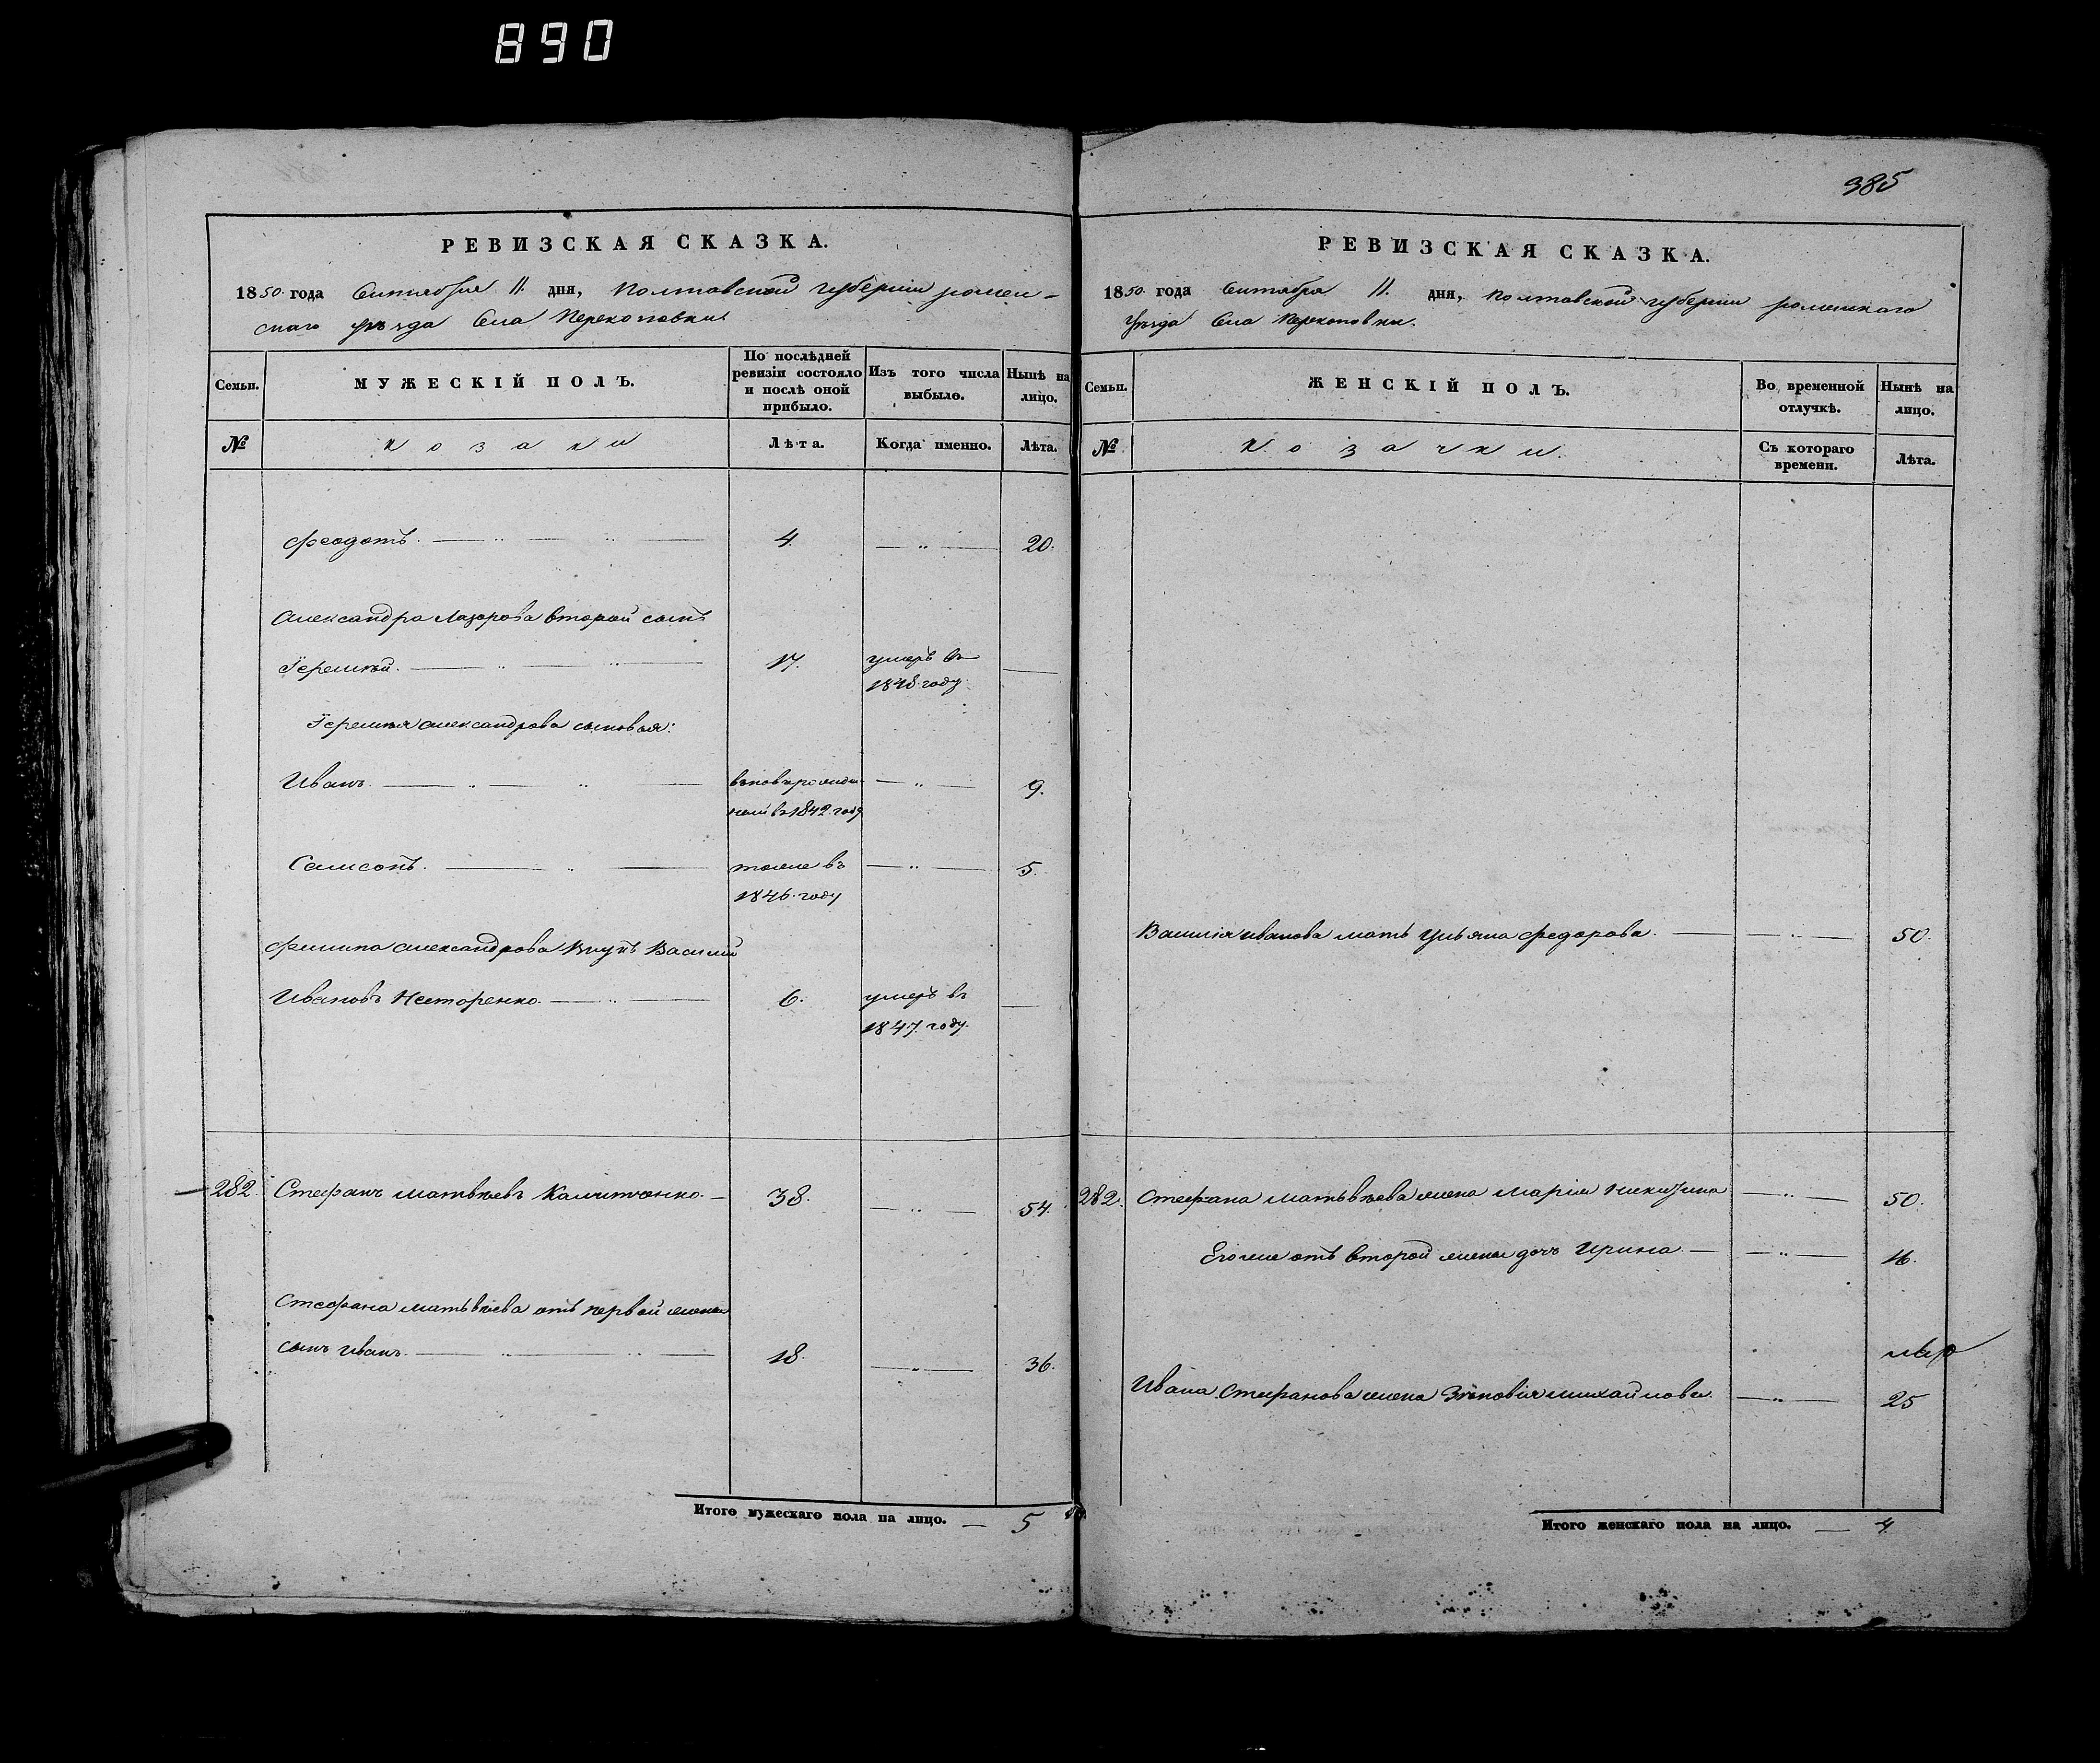 890
385
РЕВИЗСКАЯ СКАЗКА.
1850 года Сентября 11. дня, Полтавской губерніи ромен-
скаго уѣзда Села Перекоповки
Семьи.
МУЖЕСКІЙ ПОЛЪ.
По послѣдней ревизіи состояло и послѣ оной прибыло.
Изъ того числа выбыло.
Нынѣ на лицо.
№
козаки
Лѣта.
Когда именно.
Лѣта.
Феодотъ. 4. 20.
Александра Лазорова второй сынъ
Іеремѣй. 17. умеръ въ
1848. году.
Іеремѣя Александрова сыновья:
Иванъ. вновь рожден- 9.
ной въ 1842. году
Самсонъ. тоже въ 5.
1846. году
Филипа Александрова Внукъ Василий
Ивановъ Нестеренко. 6. умеръ въ
1847. году.
282. Стефанъ Матвѣевъ Калитченко. 38. 54.
Стефана Матвѣева отъ первой жены
сынъ Иванъ. 18. 36.
Итого мужескаго пола на лицо. — 5
РЕВИЗСКАЯ СКАЗКА.
1850 года Сентября 11. дня, Полтавской губерніи роменскаго
Уѣзда Села Перекоповки.
Семьи.
ЖЕНСКІЙ ПОЛЪ.
Во временной отлучкѣ.
Нынѣ на лицо.
№
козачки.
Съ котораго времени.
Лѣта.
Василія Иванова мать Ульяна Федорова. 50.
282. Стефана Матвѣева жена Марія Никитина 50.
Его же отъ второй жены дочь Ирина. 16.
Ивана Стефанова жена Зѣновія Михайлова. 25
Итого женскаго пола на лицо. — 4